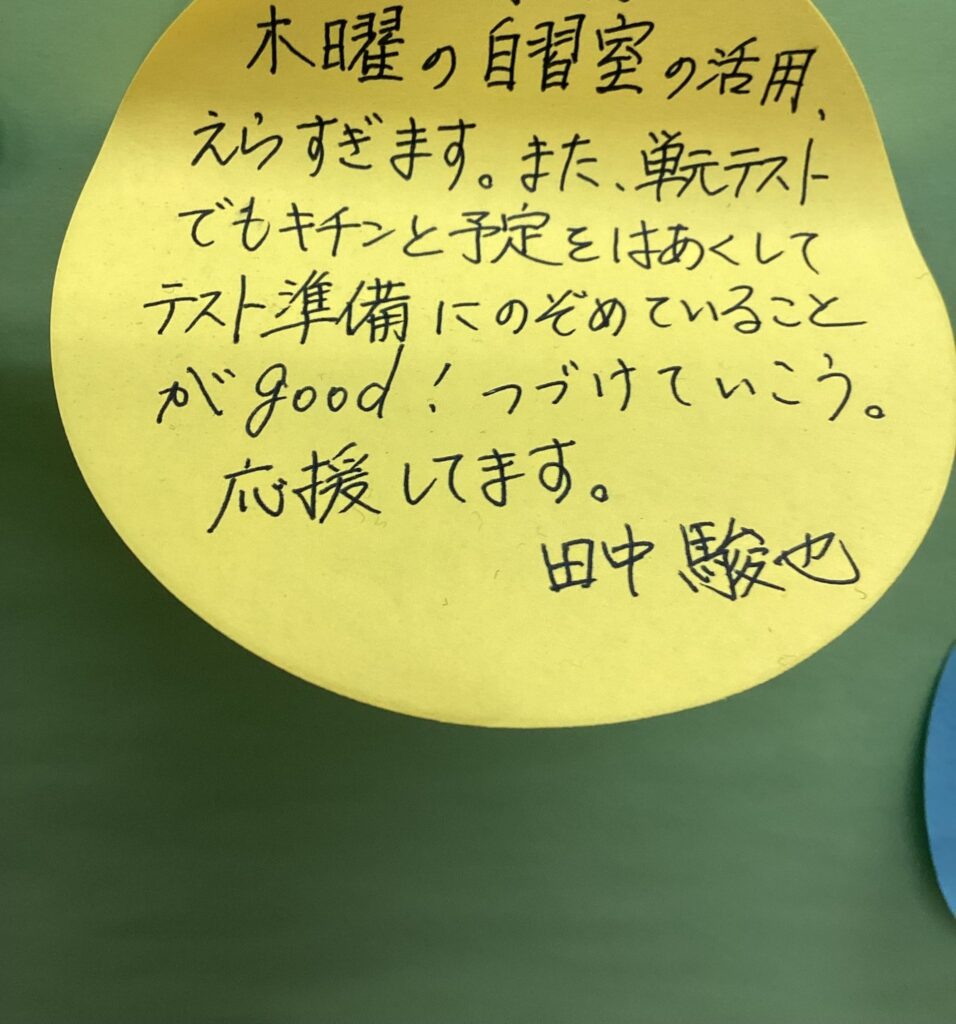 木曜の自習室の活用、
えらすぎます。また、単元テスト
でもキチンと予定をはあくして
テスト準備にのぞめていること
がgood!つづけていこう。
応援してます。
田中駿也